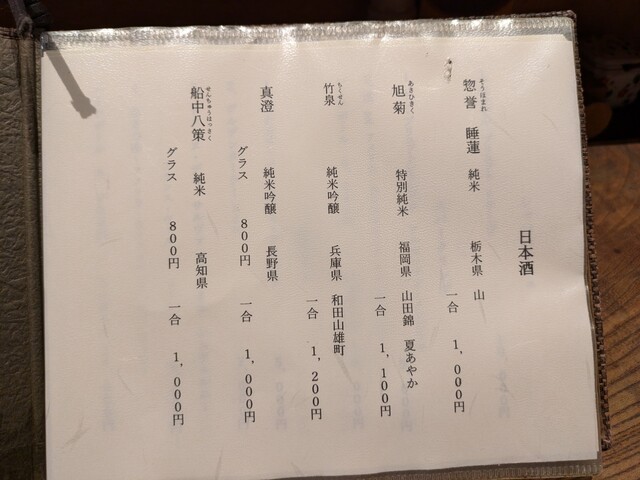 日本酒
惣誉 睡蓮 純米 栃木県 山
そうほまれ
一合 1,000円
旭菊 特別純米 福岡県 山田錦 夏あやか
あさひきく
一合 1,100円
竹泉 純米吟醸 兵庫県 和田山雄町
ちくせん
一合 1,200円
真澄 純米吟醸 長野県
グラス 800円 一合 1,000円
船中八策 純米 高知県
せんちゅうはっさく
グラス 800円 一合 1,000円